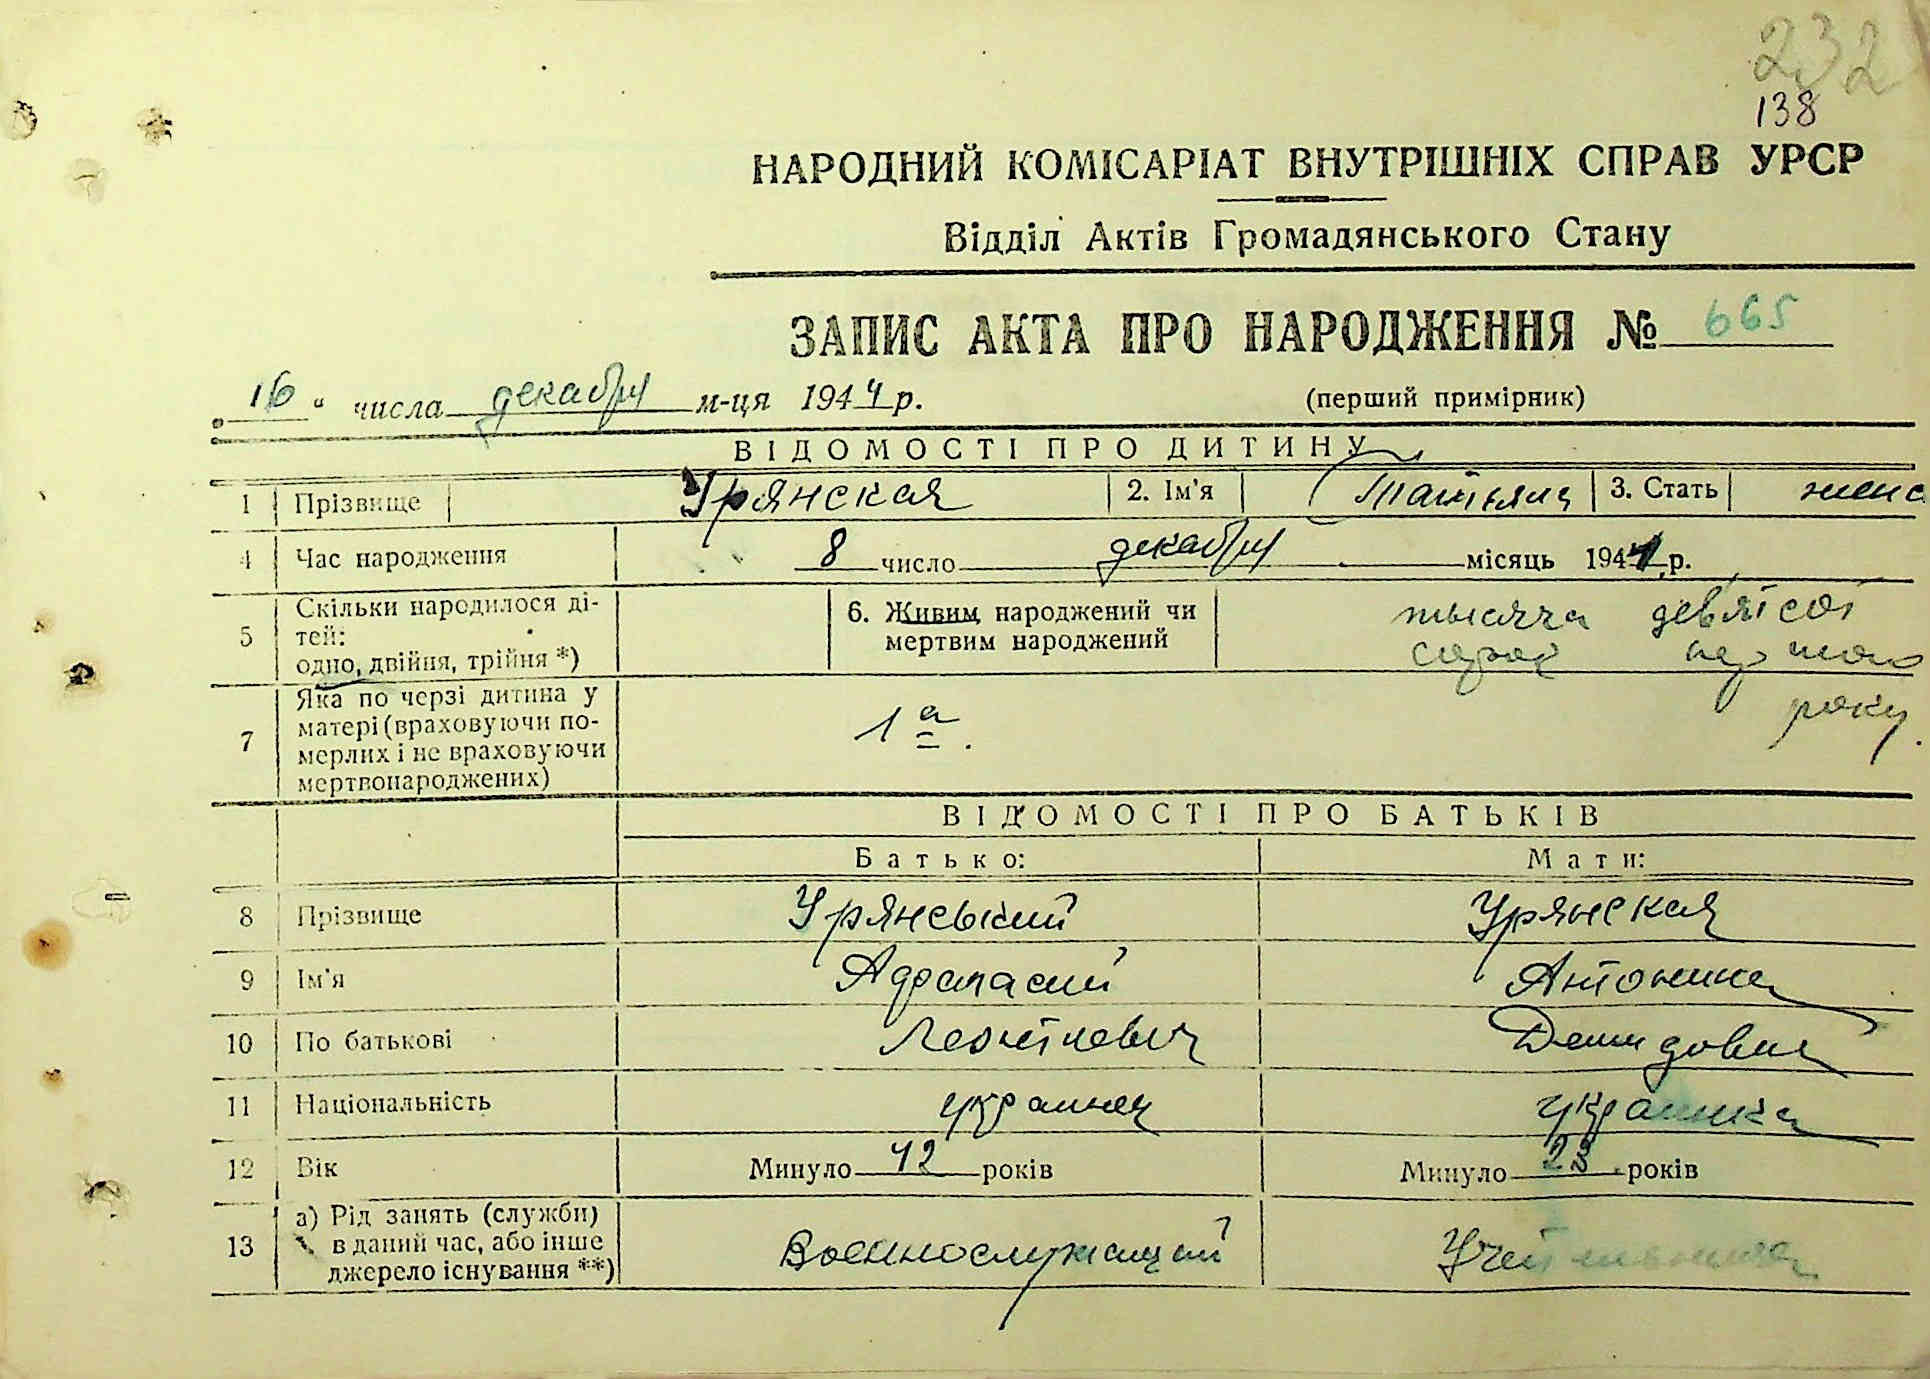 232
138
НАРОДНИЙ КОМІСАРІАТ ВНУТРІШНІХ СПРАВ УРСР
Відділ Актів Громадянського Стану
ЗАПИС АКТА ПРО НАРОДЖЕННЯ № 665
„16“ числа декабря м-ця 1944 р. (перший примірник)
ВІДОМОСТІ ПРО ДИТИНУ
1 Прізвище Урянская 2. Ім'я Татьяна 3. Стать женс
4 Час народження 8 число декабря місяць 1944 р.
5 Скільки народилося дітей: одно, двійня, трійня *) 6. Живим народжений чи мертвим народжений тысяча девятсот
сорок року.
7 Яка по черзі дитина у матері (враховуючи померлих і не враховуючи мертвонароджених) 1а.
ВІДОМОСТІ ПРО БАТЬКІВ
Батько: Мати:
8 Прізвище Урянський Урянская
9 Ім'я Афанасий Антонина
10 По батькові Леонтиевич Демидовна
11 Національність украинец украинка
12 Вік Минуло 42 років Минуло років
13 а) Рід занять (служби) в даний час, або інше джерело існування **) Военнослужащий Учительница